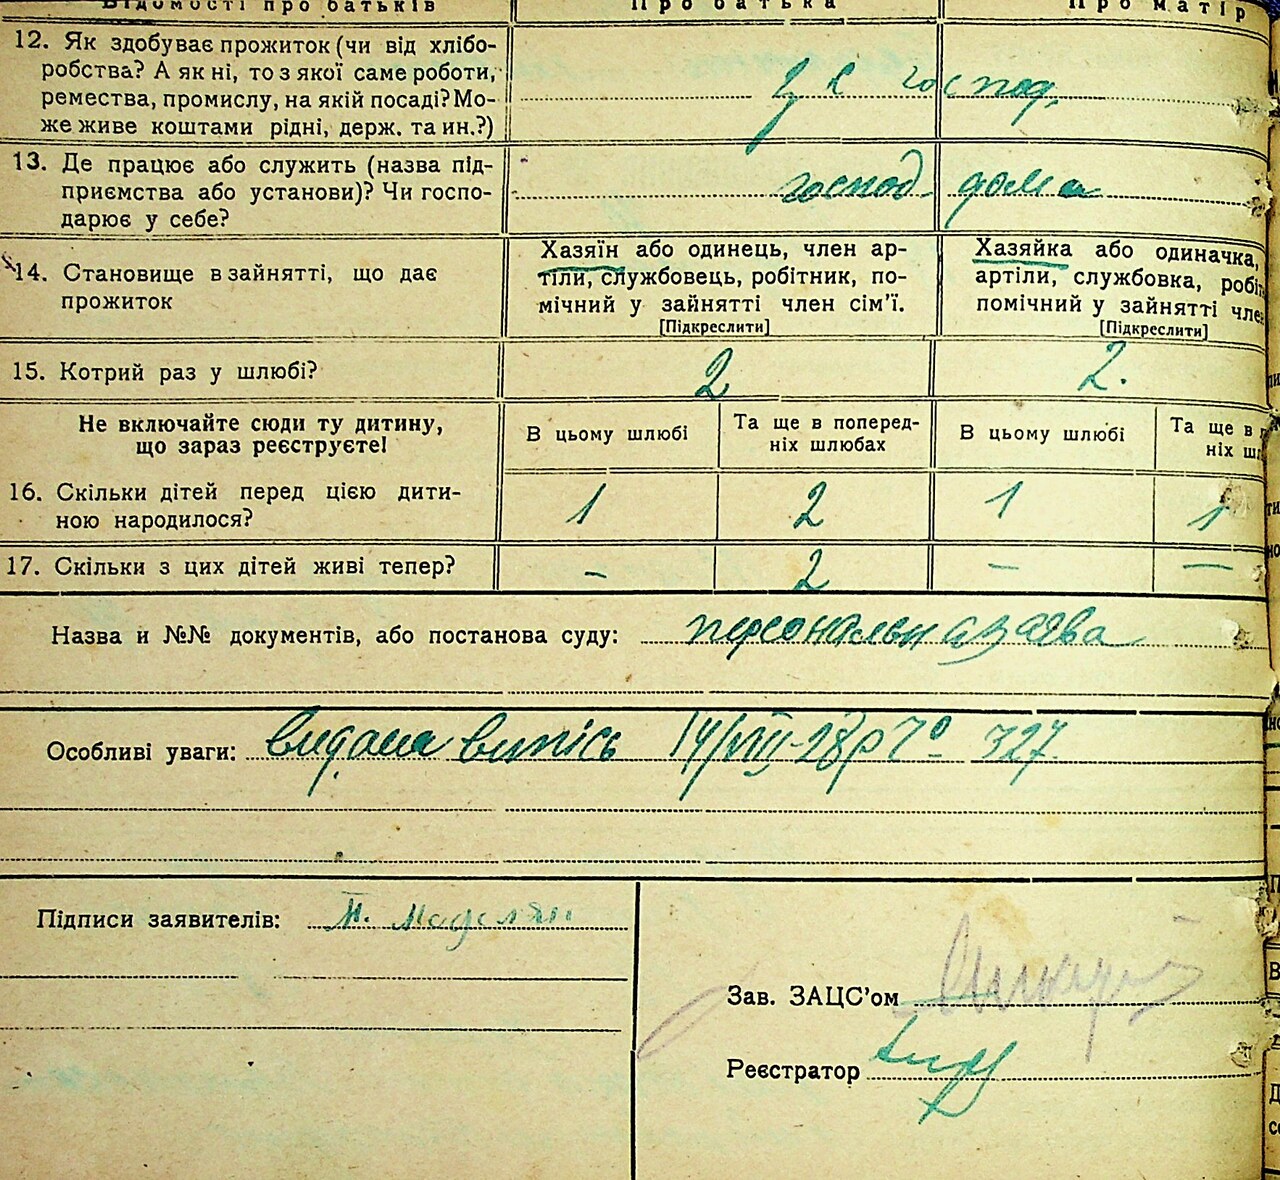 Відомості про батьків Про батька Про матір
12. Як здобуває прожиток (чи від хлібо-
робства? А як ні, то з якої саме роботи,
ремества, промислу, на якій посаді? Мо-
же живе коштами рідні, держ. та ин.?)
з с господ.
13. Де працює або служить (назва під-
приємства або установи)? Чи госпо-
дарює у себе?
господ. дома
14. Становище в зайнятті, що дає
прожиток
Хазяїн або одинець, член ар-
тіли, службовець, робітник, по-
мічний у зайнятті член сім'ї.
[Підкреслити]
Хазяйка або одиначка,
артіли, службовка, робіт
помічний у зайнятті член
[Підкреслити]
15. Котрий раз у шлюбі? 2 2.
Не включайте сюди ту дитину,
що зараз реєструєте!
В цьому шлюбі
Та ще в поперед-
ніх шлюбах
В цьому шлюбі
Та ще в п
ніх шл
16. Скільки дітей перед цією дити-
ною народилося?
1 2 1 1
17. Скільки з цих дітей живі тепер? – 2 – –
Назва и №№ документів, або постанова суду:
Особливі уваги: видана випісь 14/VIII-28р № 327.
Підписи заявителів:
Зав. ЗАЦС'ом
Реєстратор